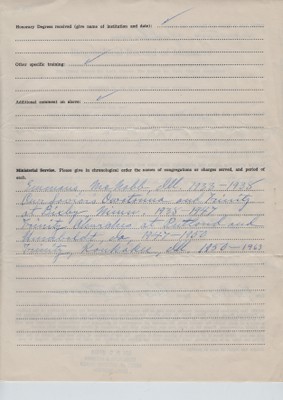 Honorary Degrees received (give name of institution and date): ✓
Other specific training: ✓
Additional comment on above: ✓
Ministerial Service. Please give in chronological order the names of congregations or charges served, and period of
each.
Ill. 1933-1935
Our Saviors Owatonna and Trinity
at Bixby Minn. 1935-1947
Trinity Churches at Rutland and
Humboldt, Ia 1947-1950
Trinity, Kankakee, Ill. 1950-1963